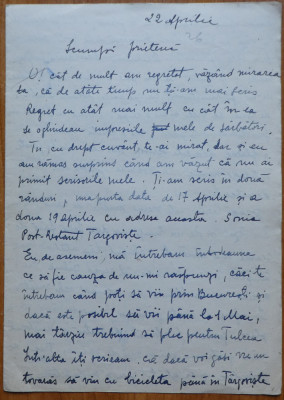 22 Aprilie
Scumpă prietenă
O, cât de mult am regretat, văzând mirarea
ta, că de atâta timp nu ți-am mai scris
Regret cu atât mai mult cu cât în ea
se oglindeau impresiile mele de sărbători.
Tu cu drept cuvânt te-ai mirat, dar și eu
am rămas surprins când am văzut că nu ai
primit scrisorile mele. Ți-am scris în două
rânduri, una purta data de 17 Aprilie și a
doua 19 Aprilie cu adresa aceasta Sonia
Post-Restant Targoviște.
Eu de asemeni, mă întrebam întruna
ce să fie cauza de nu-mi răspunzi, căci te
întrebam când poți să vii prin București și
dacă este posibil să vii până la 1 Mai,
mai târziu trebuind să plec pentru Tulcea
Într'alta îți scriam că dacă voi găsi vre un
tovarăș să vin cu bicicleta până în Târgoviște